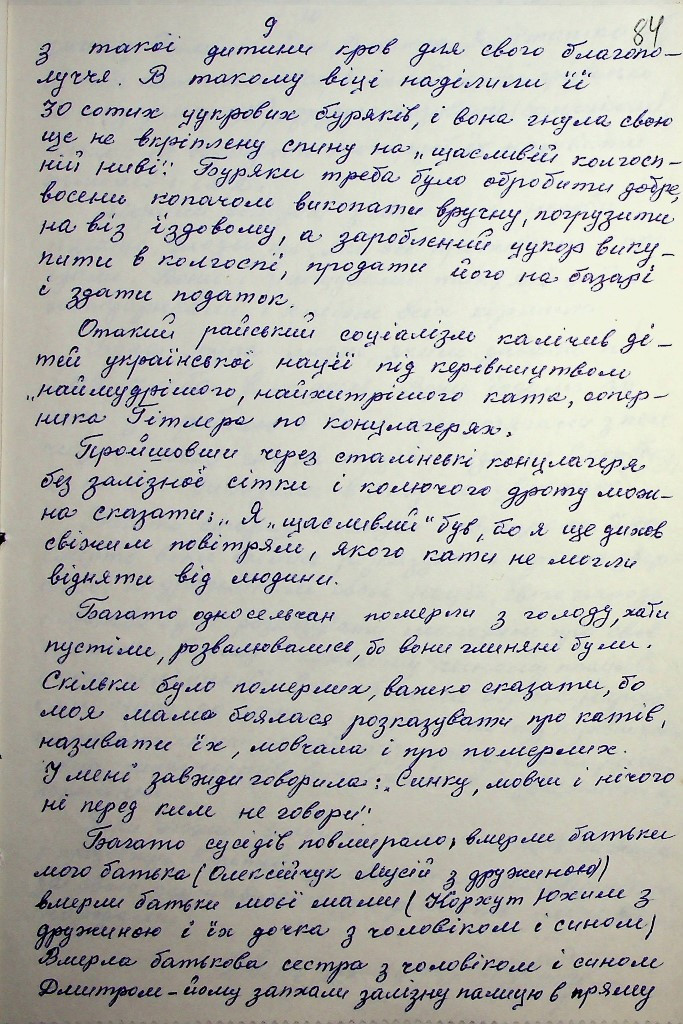 9
84
з такої дитини кров для свого благопо-
луччя. В такому віці наділили її
30 сотих цукрових буряків, і вона гнула свою
ще не вкріплену спину на „щасливій колгосп-
ній ниві". Буряки треба було обробити добре,
восени копачом викопати вручну, погрузити
на віз їздовому, а зароблений цукор вику-
пити в колгоспі, продати його на базарі
і здати податок.
Отакий райський соціалізм калічив ді-
тей української нації під керівництвом
„наймудрішого, найхитрішого ката, сопер-
ника Гітлера по концлагерях.
Пройшовши через сталінські концлагеря
без залізної сітки і колючого дроту мож-
на сказати: „Я „щасливий" був, бо я ще дихав
свіжим повітрям, якого кати не могли
відняти від людини.
Багато односельчан померли з голоду, хати
пустіли, розвалювались, бо вони глиняні були.
Скільки було померлих, важко сказати, бо
моя мама боялася розказувати про катів,
називати їх, мовчала і про померлих.
І мені завжди говорила: „Синку, мовчи і нічого
ні перед ким не говори".
Багато сусідів повмирало, вмерли батьки
мого батька (Олексійчук Мусій з дружиною)
вмерли батьки моєї мами (Корхут Юхим з
дружиною і їх дочка з чоловіком і сином)
Вмерла батькова сестра з чоловіком і сином
Дмитром – йому запхали залізну палицю в пряму